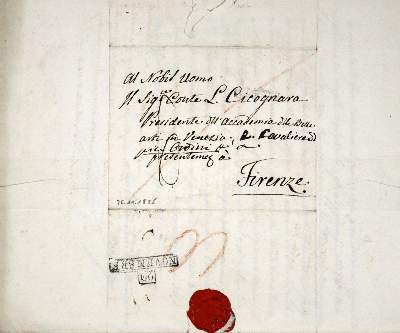 Al Nobil Uomo
Il Sigr. Conte L. Cicognara
Presidente dell'Accademia delle Belle
arti in Venezia, e Cavaliere di
più Ordini &
presentemente à
Firenze.
NOVEMBRE